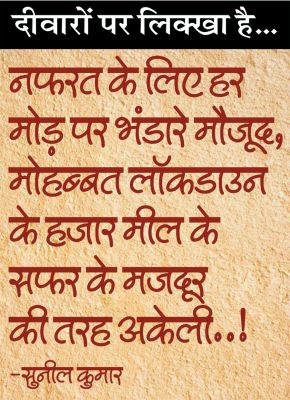 दीवारों पर लिक्खा है...
नफरत के लिए हर
मोड़ पर भंडारे मौजूद,
मोहब्बत लॉकडाउन
के हजार मील के
सफर के मजदूर
की तरह अकेली..!
-सुनील कुमार